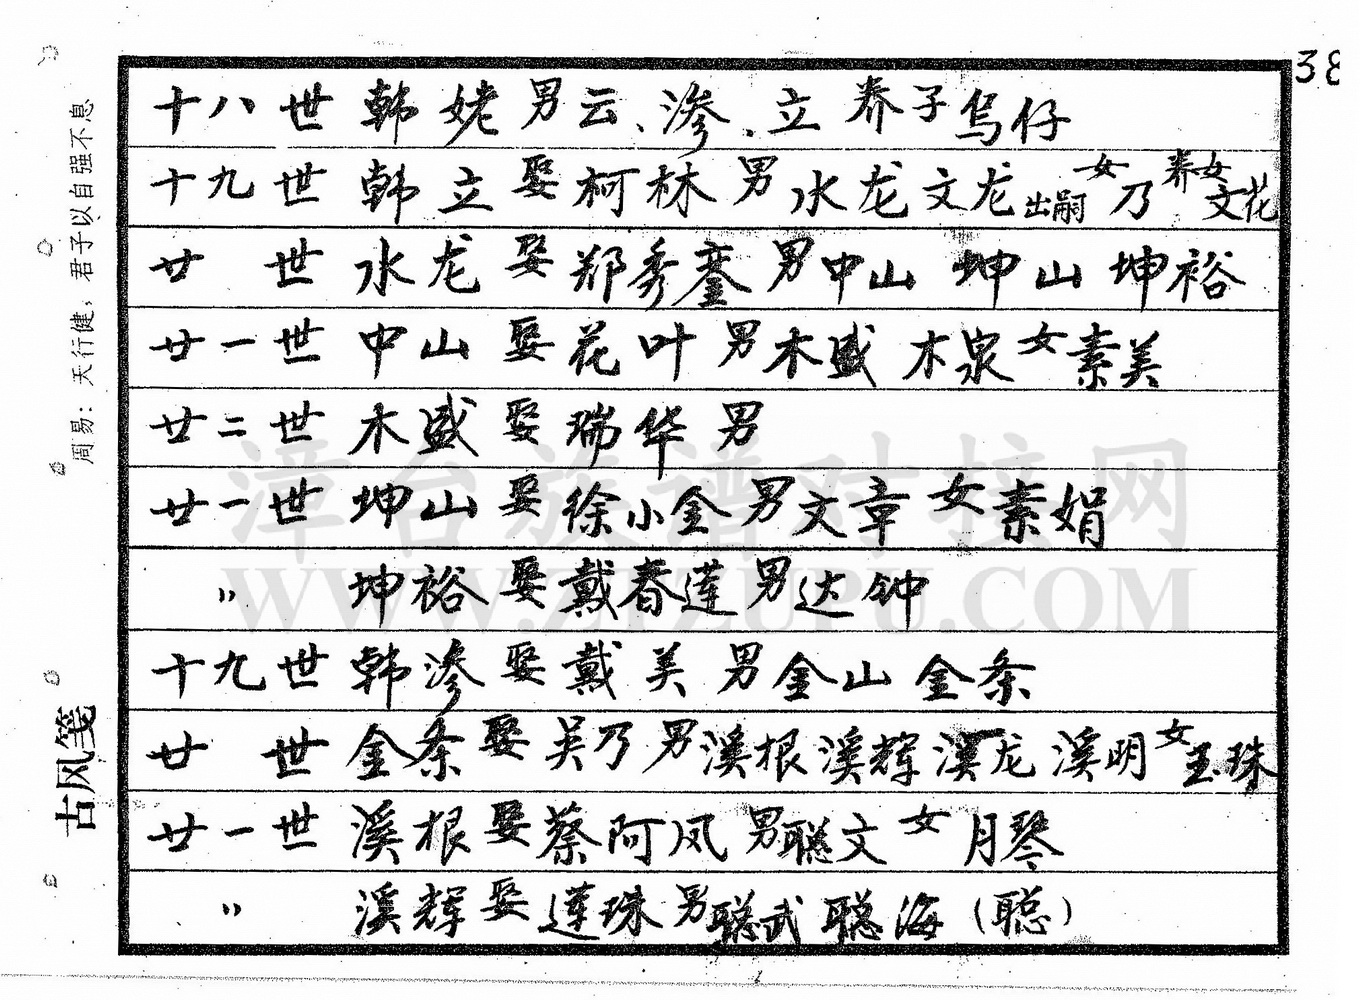 38
十八世 韩姥 男云、渗、立 养子乌仔
十九世 韩立 娶柯林 男水龙 文龙出嗣 女乃 养女文花
廿 世 水龙 娶郑秀銮 男中山 坤山 坤裕
廿一世 中山 娶花叶 男木盛 木泉 女素美
廿二世 木盛 娶瑞华 男
廿一世 坤山 娶徐小金 男文章 女素娟
〃 坤裕 娶戴春莲 男达钟
十九世 韩渗 娶戴美 男金山 金条
廿 世 金条 娶吴乃 男溪根 溪辉 溪龙 溪明 女玉珠
廿一世 溪根 娶蔡阿凤 男聪文 女月琴
〃 溪辉 娶莲珠 男聪武 聪海（聪）
周易：天行健，君子以自强不息
古风笺
漳台族谱对接网
WWW.ZTZUPU.COM